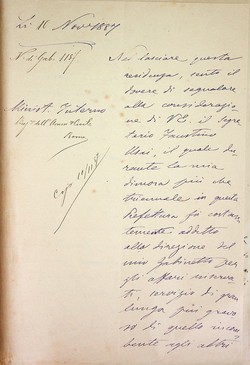 Lì 11 Novre 1887
N. di Gab. 1157
Minist. Interno
Roma
Nel lasciare questa
residenza, sento il
dovere di segnalare
alla considerazio
ne di V.E. il segre
tario Faustino
il quale du
rante la mia
dimora più che
triennale in questa
Prefettura fu costan
temente addetto
alla direzione del
mio Gabinetto per
gli affari riserva
ti, servizio di gran
lunga più gravo
so di quello incom
bente agli altri